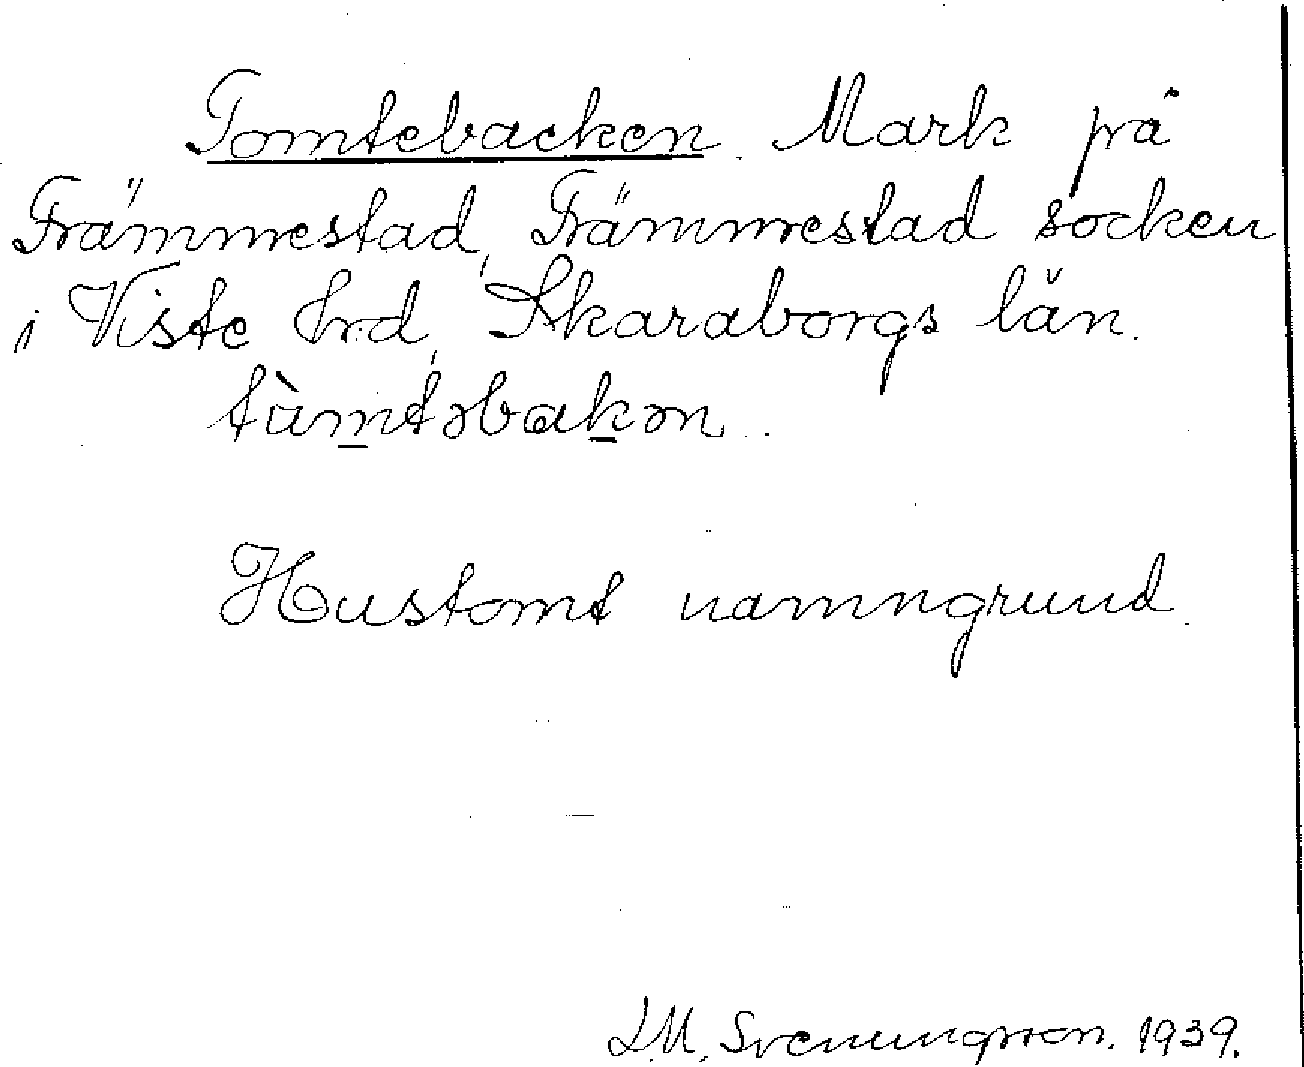 Tomtebacken. Mark på
Främmestad, Främmestad socken
i Viste hrd, Skaraborgs län.
tàm̲təbak̲ən.
Hustomt namngrund.
L.M. Svenungsson. 1939.